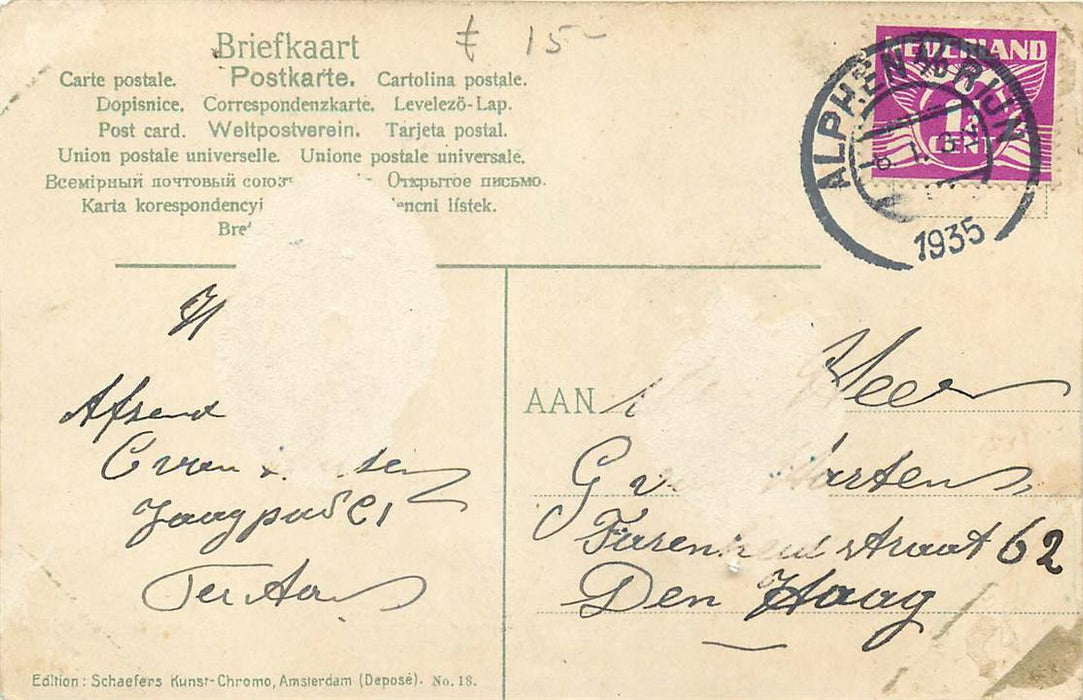 Briefkaart
Carte postale. Postkarte. Cartolina postale.
Dopisnice. Correspondenzkarte. Levelező-Lap.
Post card. Weltpostverein. Tarjeta postal.
Union postale universelle. Unione postale universale.
Всемірный почтовый союз Открытое письмо.
Karta korespondencyj lístek.
£ 15-
NEDERLAND
CENT
ALPHEN A/D RIJN
1935
Afzend
Jaagpad
Ter Aar
AAN
Heer
G v Martens
straat 62
Den Haag
Edition: Schaefers Kunst-Chromo, Amsterdam (Deposé). No. 18.